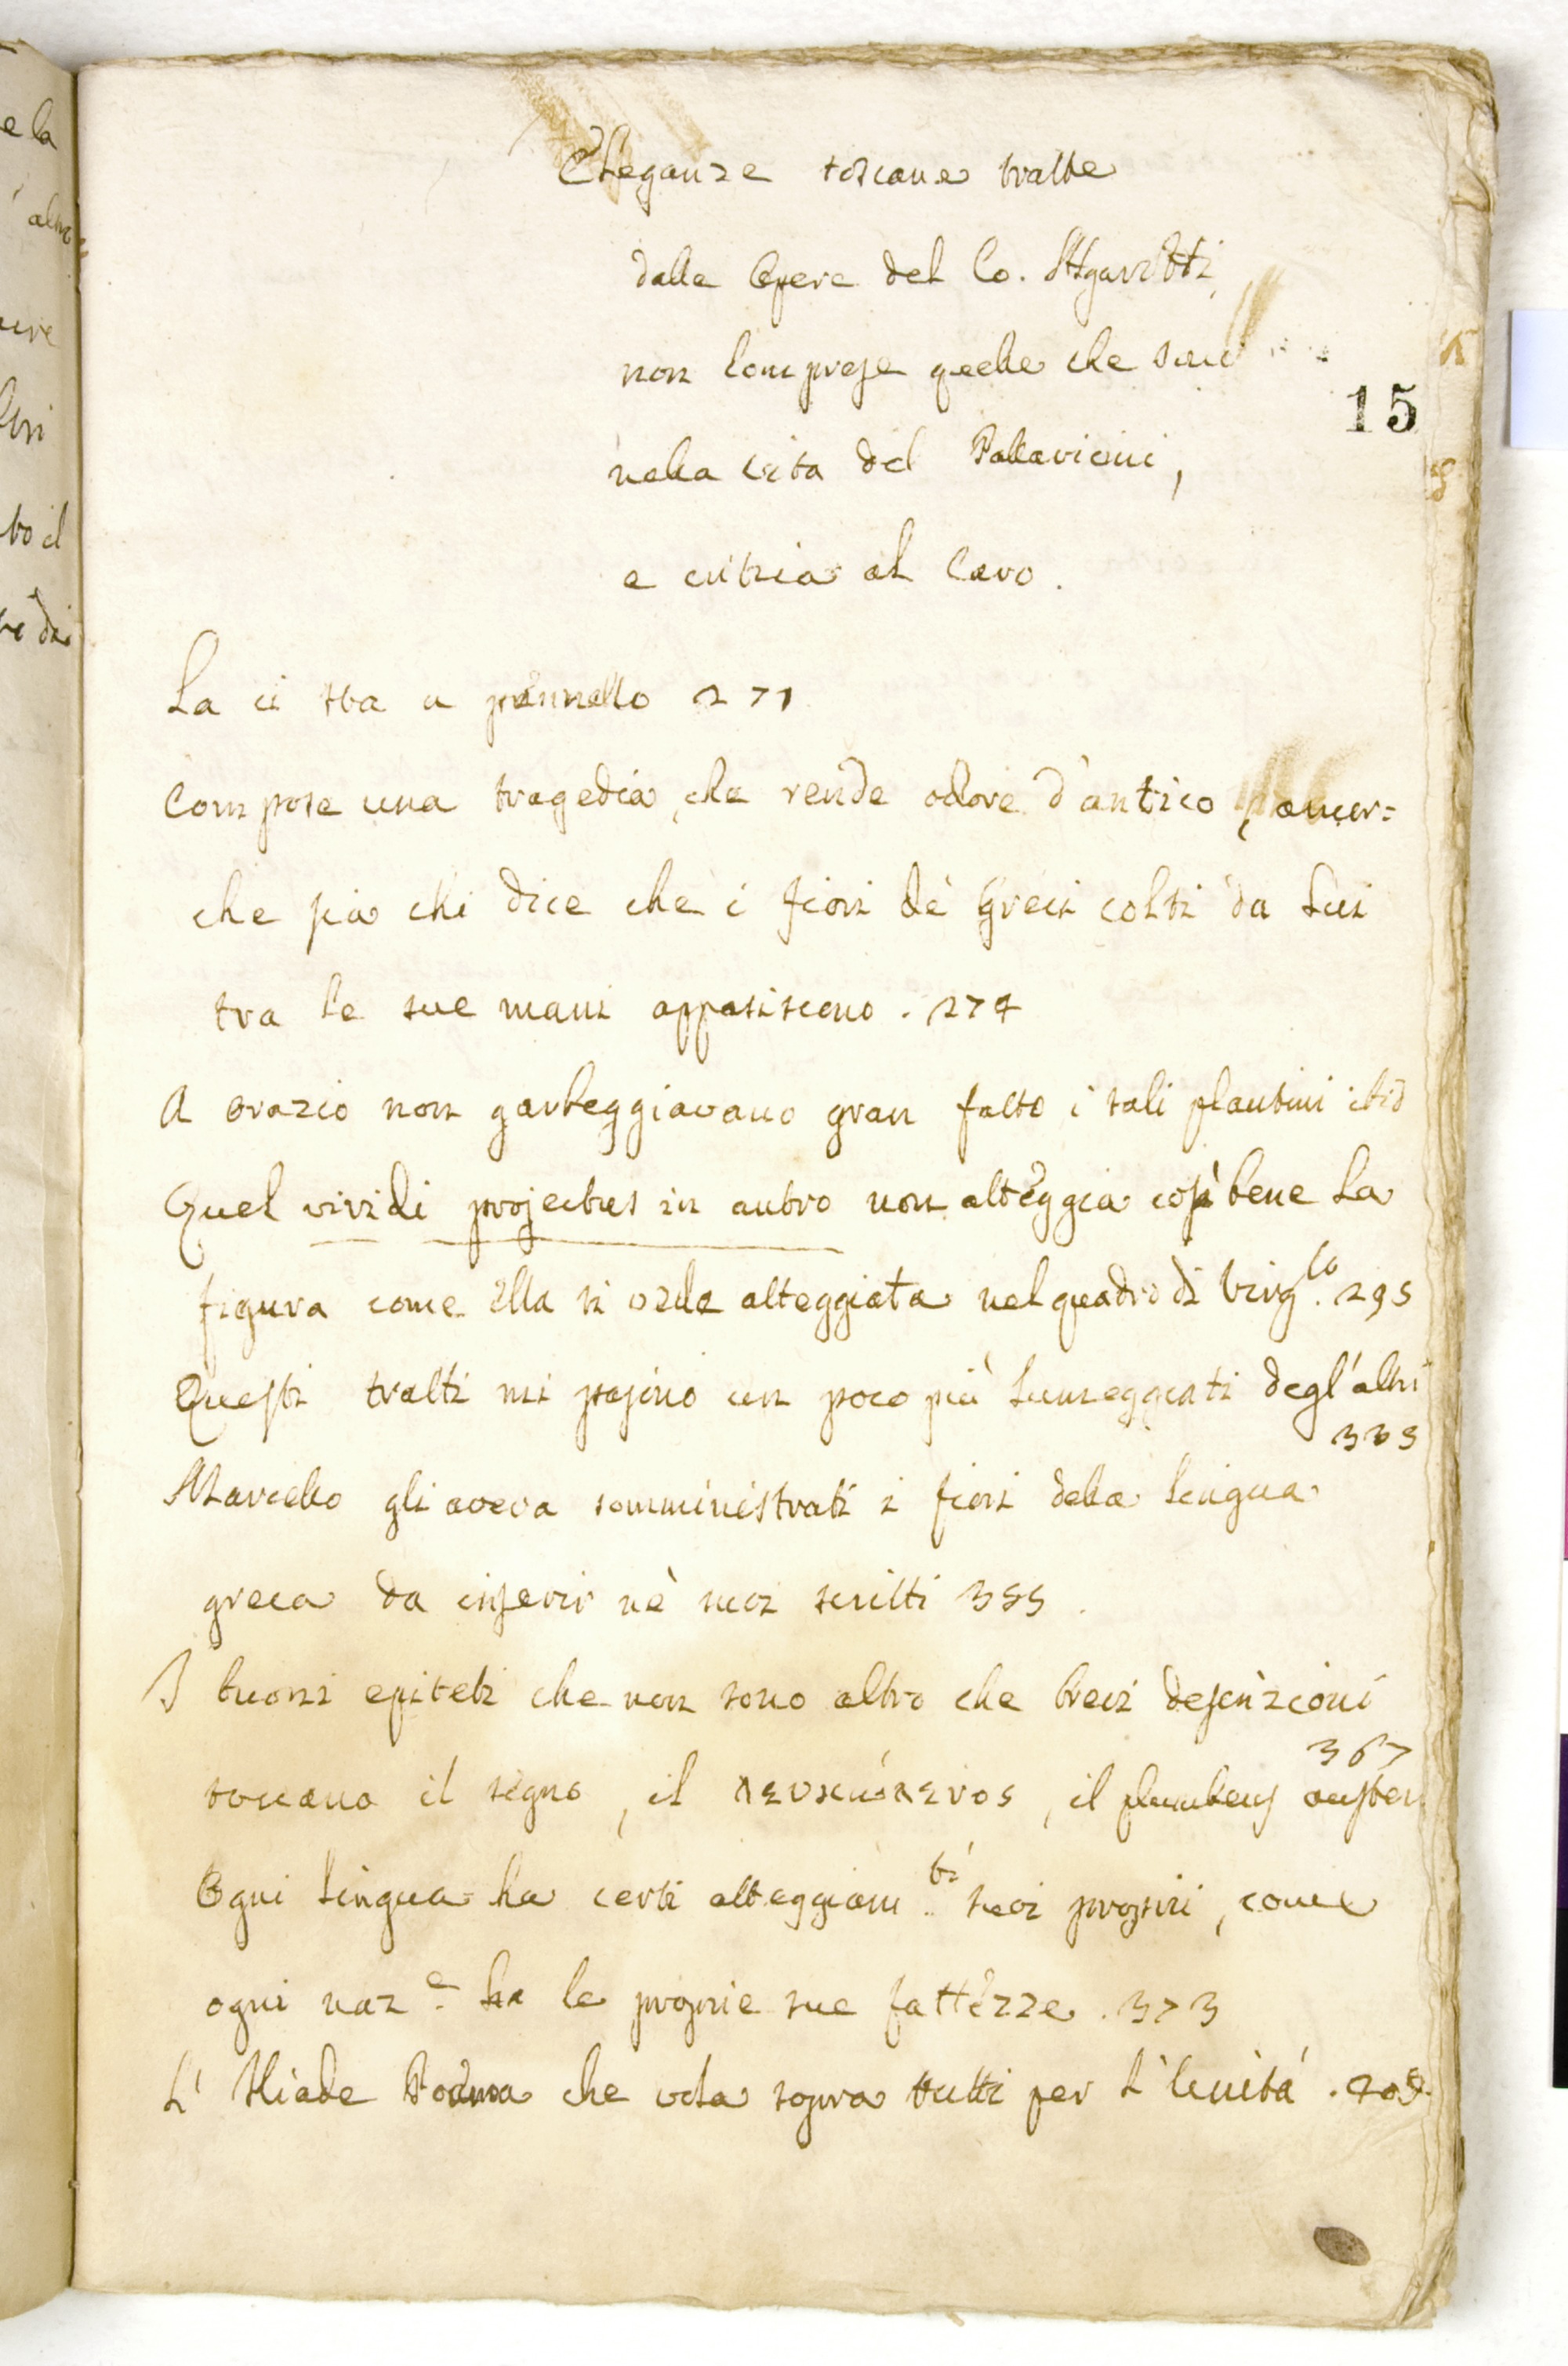 Eleganze toscane tratte
dalle Opere del Co. Algarotti,
non comprese quelle che sono
nella vita del Pallavicini,
e critica al Caro.
15
La ci sta a pennello 271
Compose una tragedia, che rende odore d'antico, ancor=
che sia chi dice che i fiori de' Greci colti da lui
tra le sue mani appasiscono. 274
A Orazio non garbeggiavano gran fatto i sali plautini ibid
Quel viridi projectus in antro non atteggia così bene la
figura come ella si vede atteggiata nel quadro di Virg.lo 295
Questi tratti mi pajono un poco più lumeggiati degl'altri
Marcello gli aveva somministrati i fiori della lingua
greca da inserir ne' suoi scritti 355.
I buoni epiteti che non sono altro che brevi descrizioni
367
toccano il segno, il, il plumbeus auster
Ogni lingua ha certi atteggiam.ti suoi proprii, come
ogni naz.e ha le proprie sue fattezze. 373
L'Iliade Poema che vola sopra tutti per l'unità.